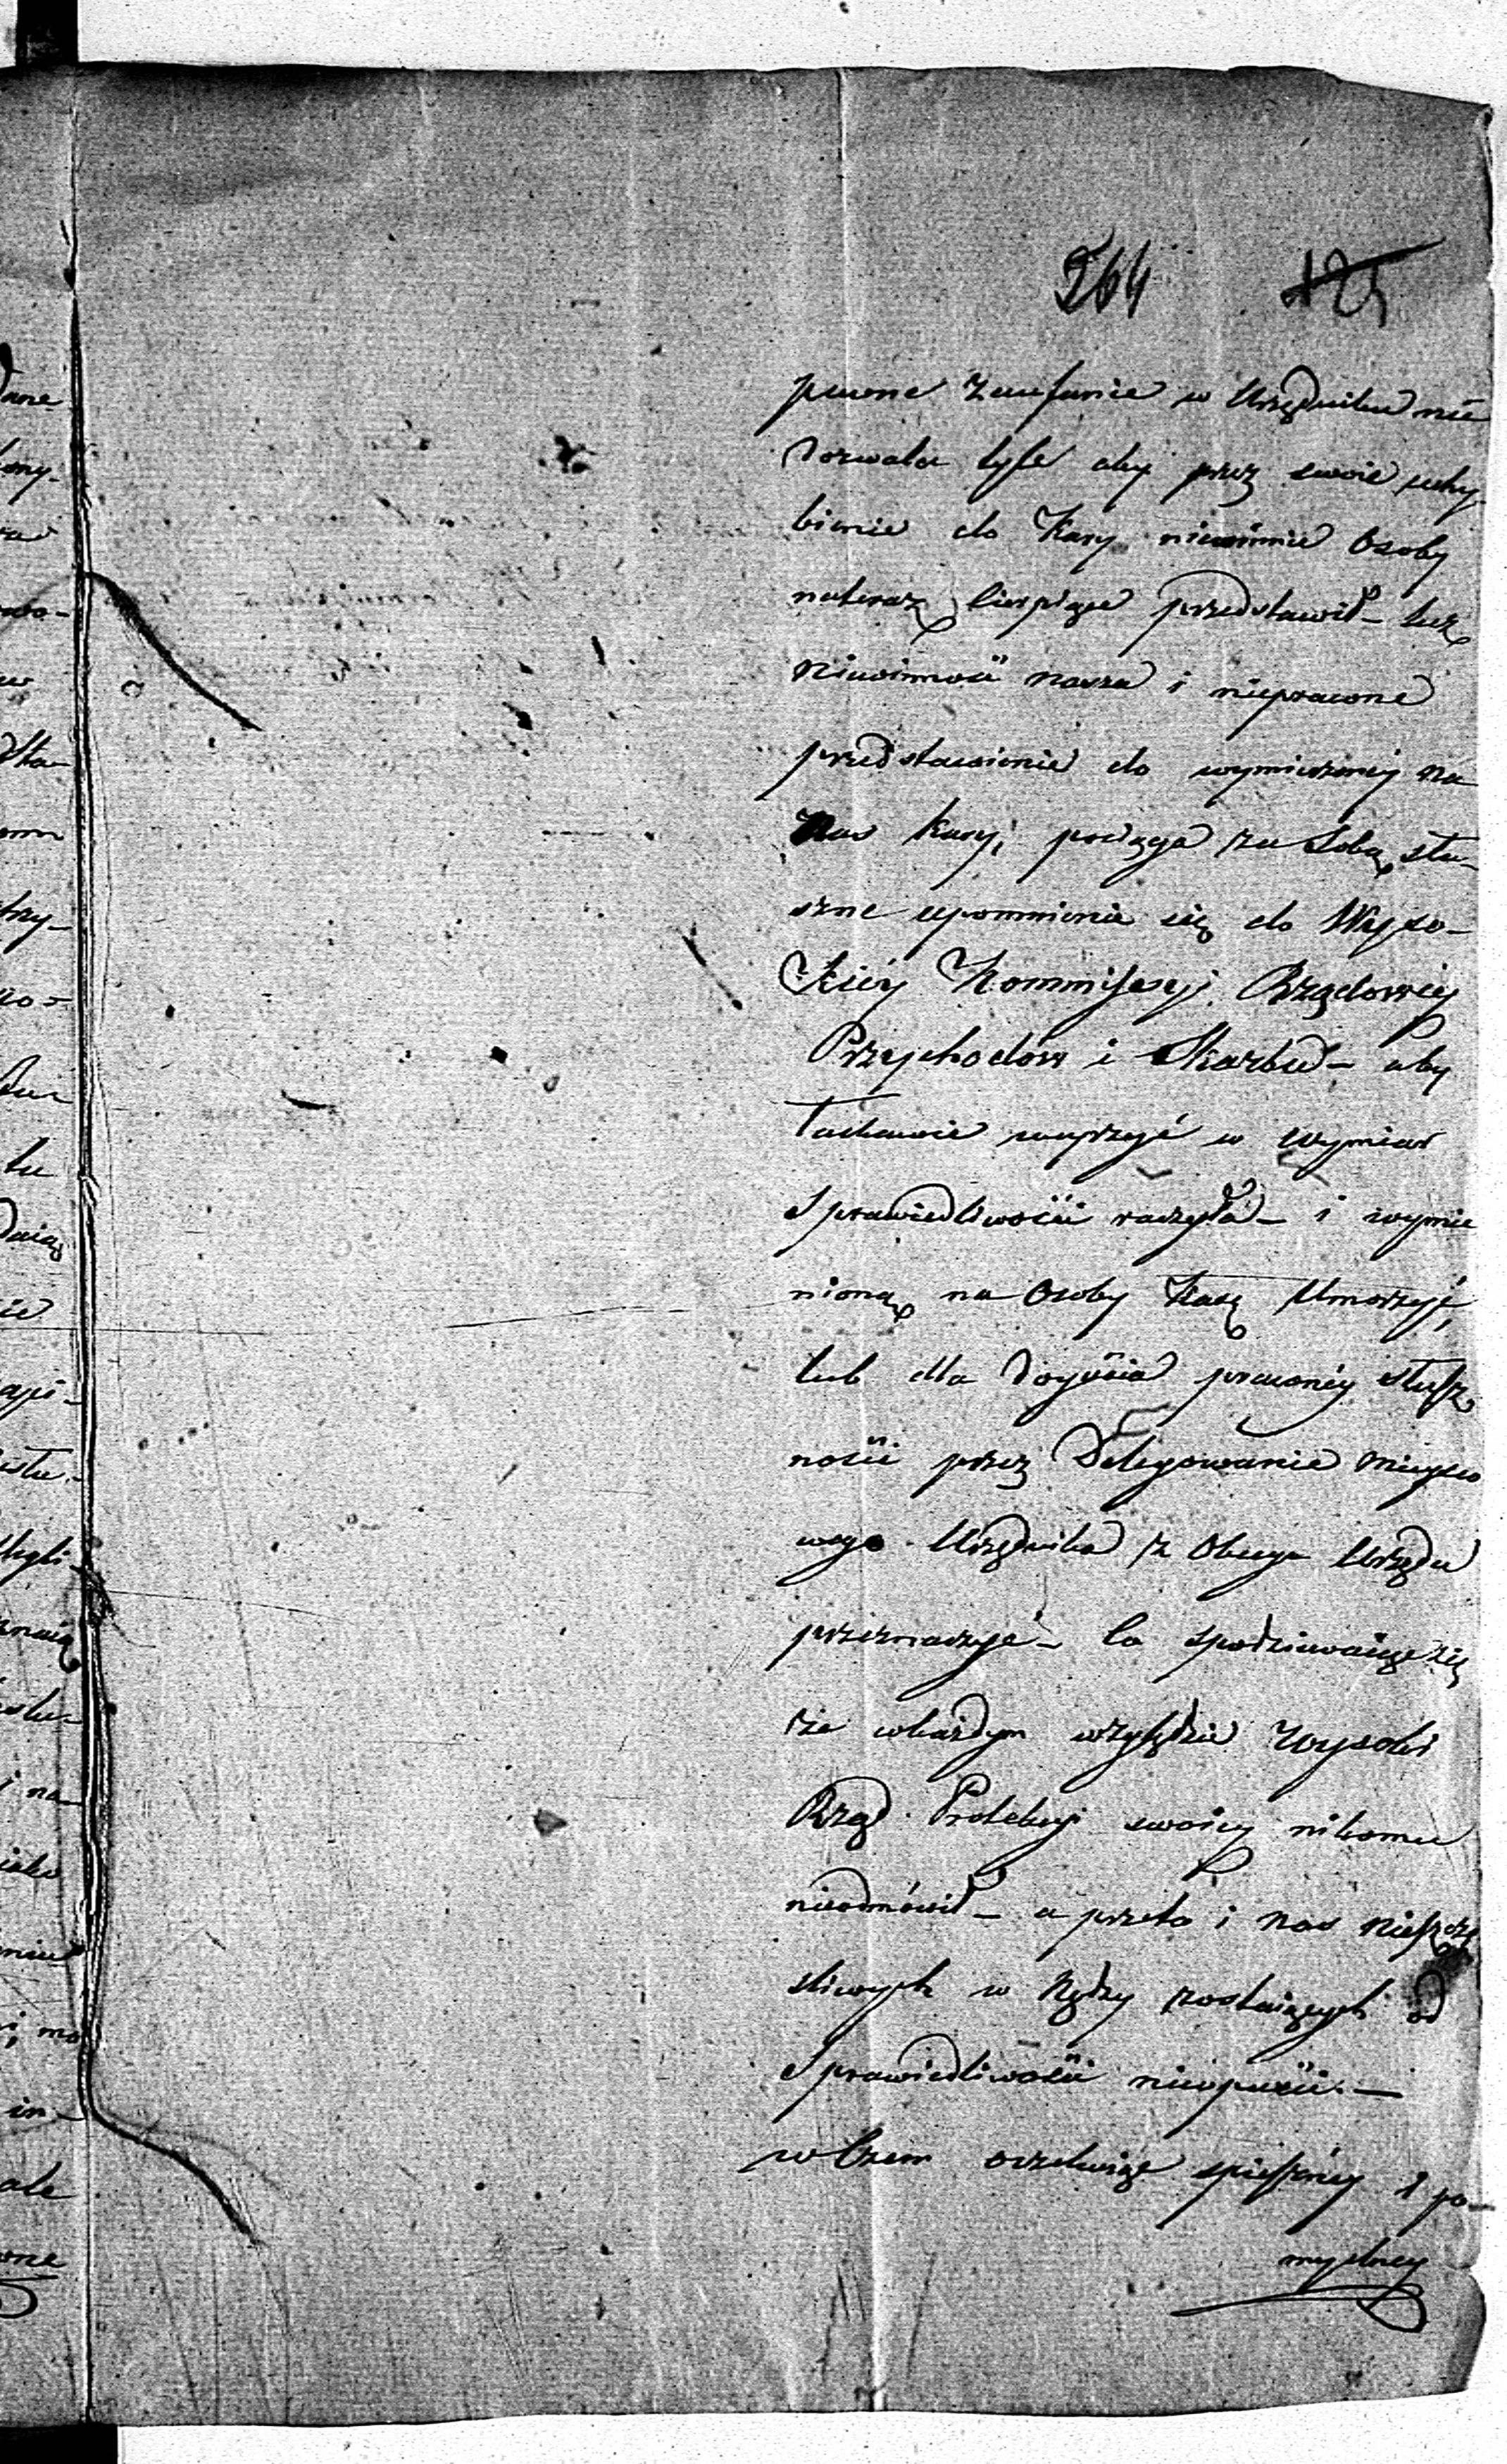 264 125
pewne zaufanie w Urzędniku nie
dozwala tyle aby przez swoie uchy-
bienie do Kary niewinnie Osoby
nateraz Cierpiące przedstawił - lecz
Niewinność nasza i nieprawne
przedstawienie do wymierzoney na
Nas kary, pociąga za Sobą słu-
szne upomnienie się do Wyso-
kiéy Kommissyj Rządowey
Przychodów i Skarbu - aby
Łaskawie weyrzyć w wymiar
Sprawiedliwości raczyła - i wymie
nioną na Osoby Karę Umorzyć,
lub dla doyścia prawnéy słusz
ności przez Delegowanie Mieysco
wego Urzędnika z Obcego Urzędu
przeznaczyć - Co spodziewaiąc się
że wkażdym względzie Wysoki
Rząd Protekcyi swoiey nikomu
nieodmówił - a przeto i nas Nieszczę
śliwych w Nędzy zostaiących od
Sprawiedliwości nieopuści. —
w Czem oczekuiąc spieszney i po-
myślney